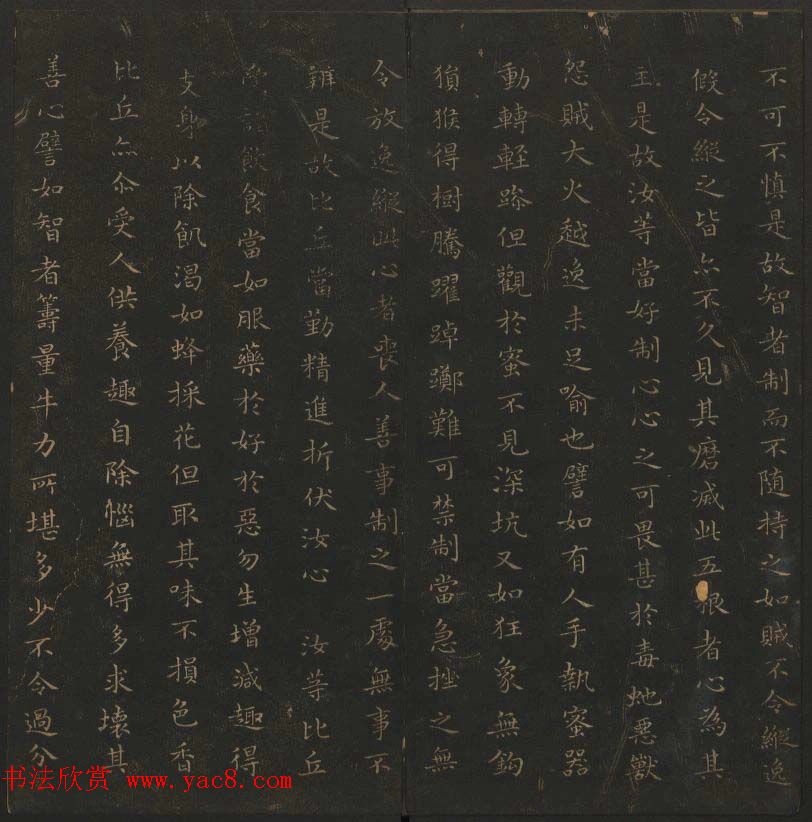 不可不慎是故智者制而不隨持之如賊不令縱逸
假令縱之皆亦不久見其磨滅此五根者心為其
主是故汝等當好制心心之可畏甚於毒虵惡獸
怨賊大火越逸未足喻也譬如有人手執蜜器
動轉輕躁但觀於蜜不見深坑又如狂象無鈎
猨猴得樹騰躍踔躑難可禁制當急挫之無
令放逸縱此心者喪人善事制之一處無事不
辦是故比丘當勤精進折伏汝心 汝等比丘
受諸飲食當如服藥於好於惡勿生增減趣得
支身以除飢渴如蜂採花但取其味不損色香
比丘亦尒受人供養趣自除惱無得多求壞其
善心譬如智者籌量牛力所堪多少不令過分
书法欣赏 www.yac8.com